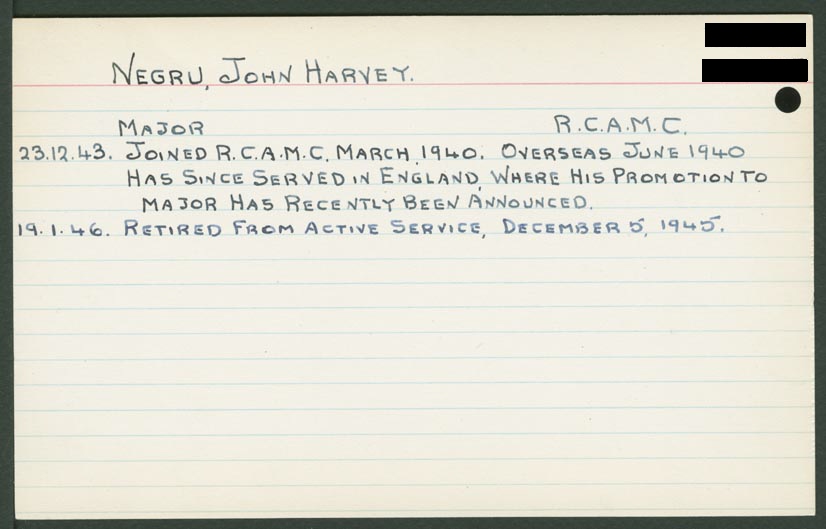 NEGRU, JOHN HARVEY.
MAJOR R.C.A.M.C.
23.12.43. JOINED R.C.A.M.C. MARCH 1940. OVERSEAS JUNE 1940
HAS SINCE SERVED IN ENGLAND, WHERE HIS PROMOTION TO
MAJOR HAS RECENTLY BEEN ANNOUNCED.
19.1.46. RETIRED FROM ACTIVE SERVICE, DECEMBER 5, 1945.